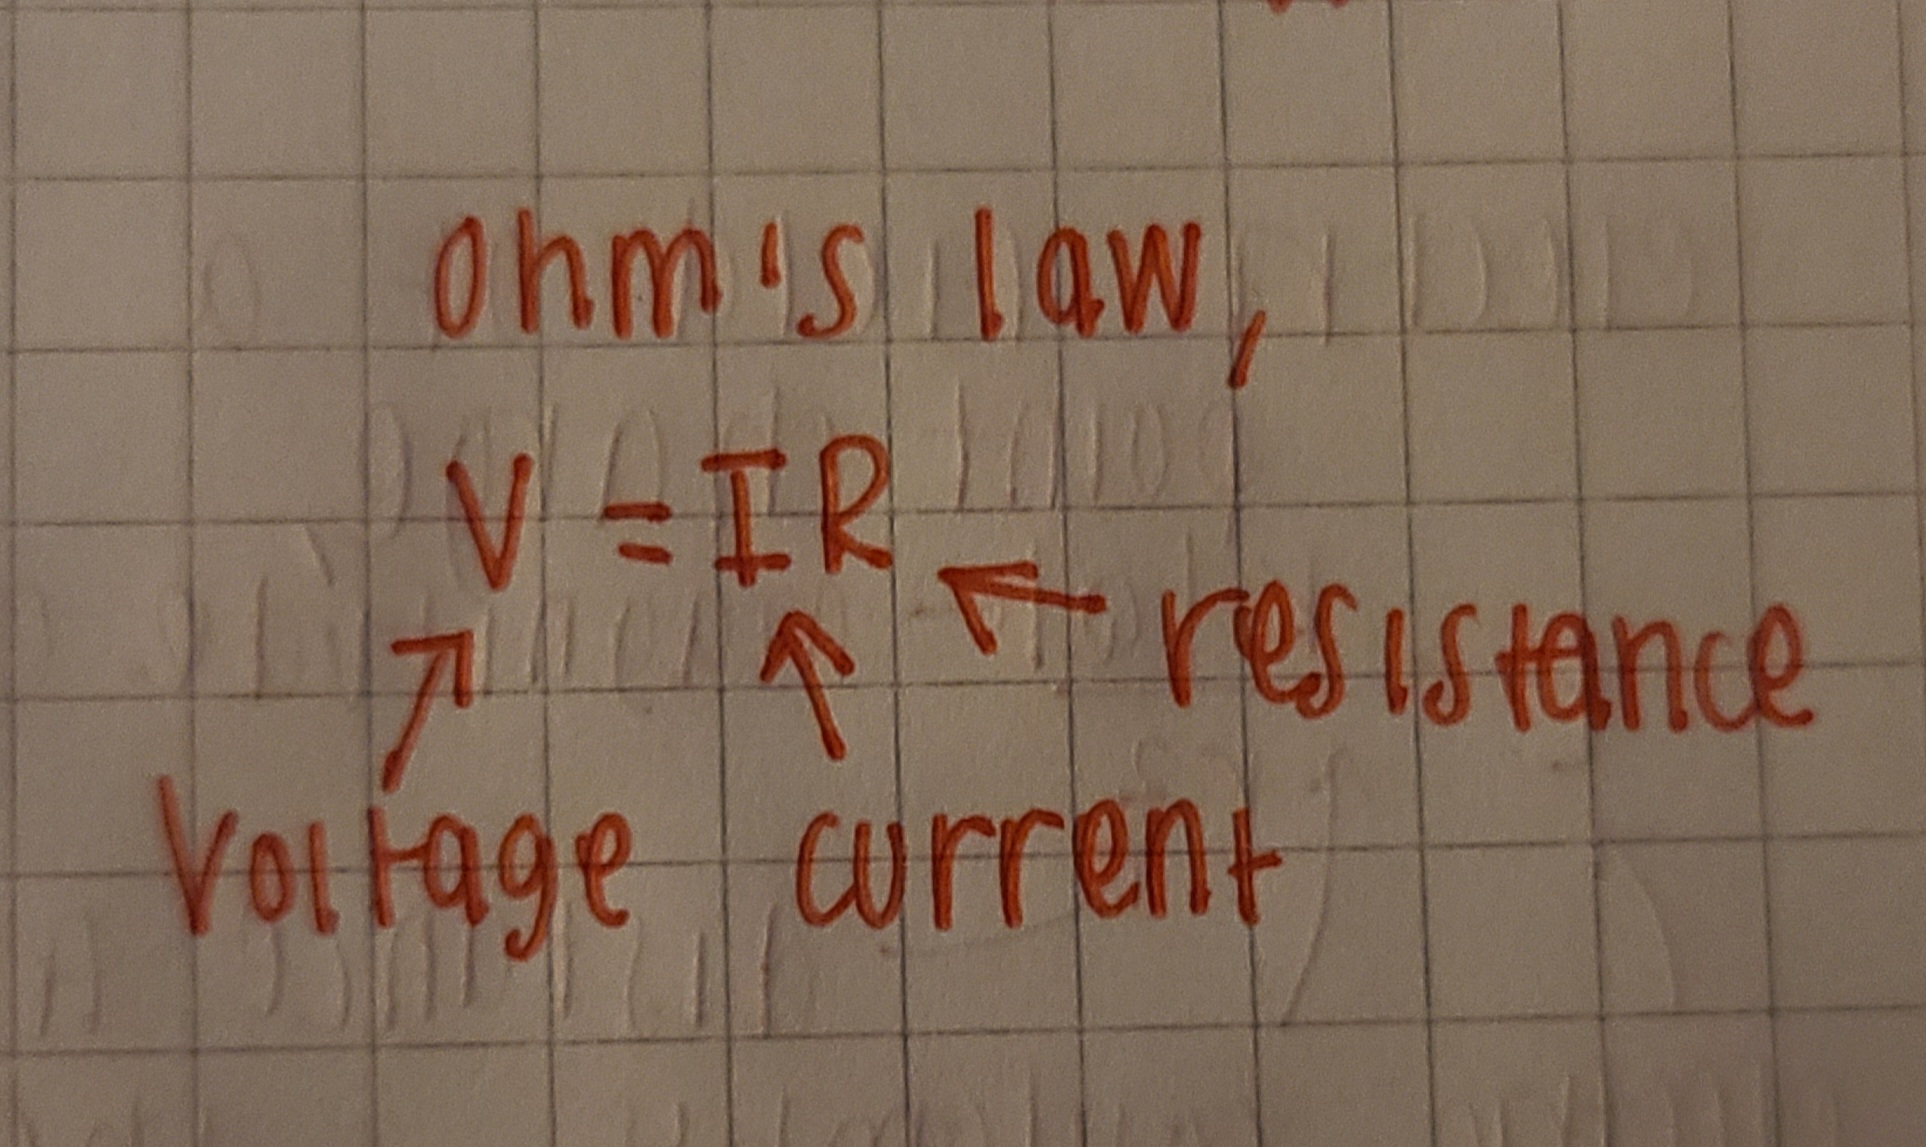 ohm's law,
V = IR
resistance
Voltage current